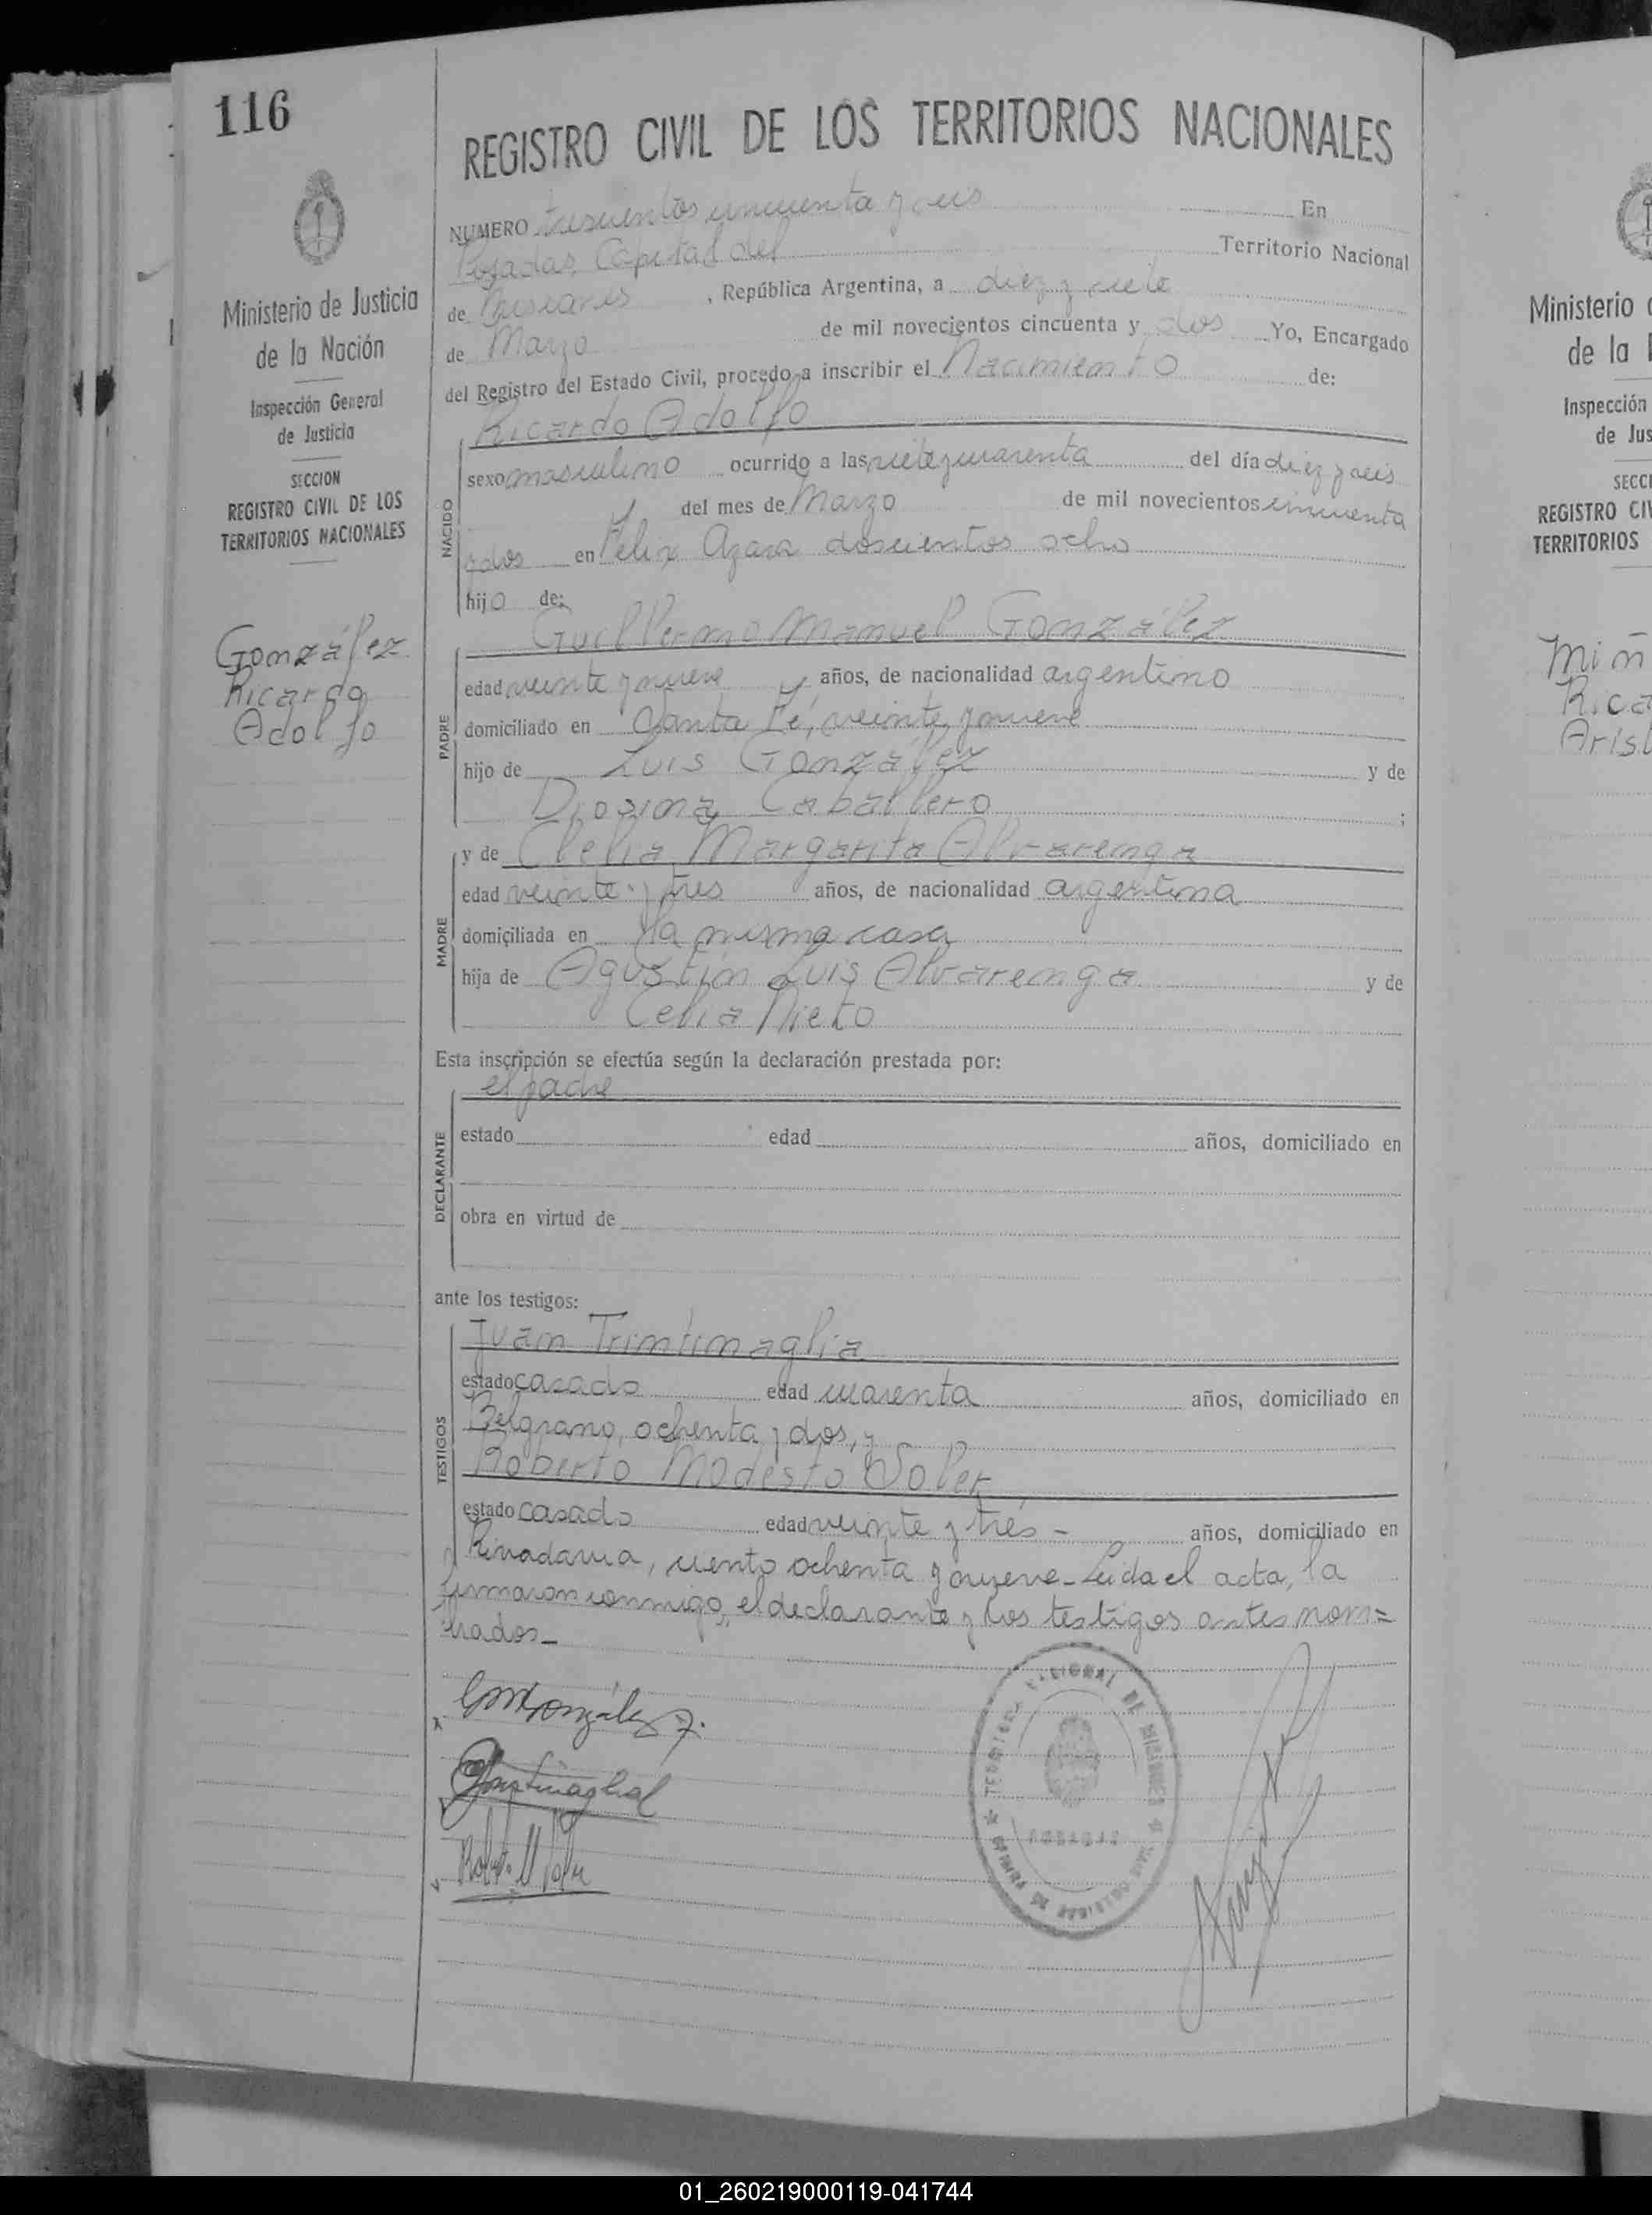 116
REGISTRO CIVIL DE LOS TERRITORIOS NACIONALES
NUMERO trescientos cincuenta y seis En
Posadas, Capital del Territorio Nacional
de Misiones, República Argentina, a diez y siete
de Marzo de mil novecientos cincuenta y dos Yo, Encargado
del Registro del Estado Civil, procedo a inscribir el Nacimiento de:
Ricardo Adolfo
sexo masculino ocurrido a las siete y cuarenta del día diez y seis
del mes de Marzo de mil novecientos cincuenta
y dos en Felix Azara doscientos ocho
hijo de:
NACIDO
Guillermo Manuel González
edad veinte y nueve años, de nacionalidad argentino
domiciliado en Santa Fé, veinte y nueve
hijo de Luis González y de
Caballero ;
PADRE
y de Clelia Margarita Alvarenga
edad veinte y tres años, de nacionalidad argentina
domiciliada en la misma casa
hija de Agustín Luis Alvarenga y de
Celia Nieto
MADRE
Esta inscripción se efectúa según la declaración prestada por:
el padre
estado edad años, domiciliado en
obra en virtud de
DECLARANTE
ante los testigos:
Juan Trintinaglia
estado casado edad cuarenta años, domiciliado en
Belgrano, ochenta y dos, y
Roberto Modesto Soler
estado casado edad veinte y tres - años, domiciliado en
TESTIGOS
Rivadavia, ciento ochenta y nueve - Leida el acta, la
firmaron conmigo, el declarante y los testigos antes nom=
brados_
GMGonzález
Roberto M Soler
TERRITORIO NACIONAL DE MISIONES
POSADAS
OFICINA DE REGISTRO CIVIL
Ministerio de Justicia
de la Nación
Inspección General
de Justicia
SECCION
REGISTRO CIVIL DE LOS
TERRITORIOS NACIONALES
González
Ricardo
Adolfo
Ministerio
de la
Inspección
de Jus
SECCI
REGISTRO CIV
TERRITORIOS
Miñ
Rica
Arist
01_260219000119-041744